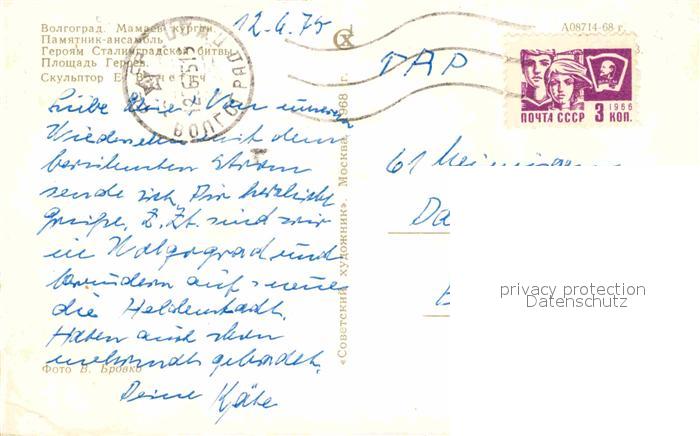 Волгоград. Мамаев курган.
Памятник-ансамбль
Героям Сталинградской битвы
Площадь Героев.
Скульптор Е.
12.6.75
А08714-68 г.
DDR
1966
ПОЧТА СССР 3 КОП.
ВОЛГОГРАД
Liebe Von unserem
Wiedersehen mit dem
berühmten Strom
sende ich Dir herzliche
Grüße. Z. Zt. sind wir
in Wolgograd und
bewundern aufs neue
die Heldenstadt.
Haben auch schon
mehrmals gebadet.
Deine Käte
61 Meiningen
Фото В. Бровко
«Советский художник». Москва. 1968 г.
privacy protection
Datenschutz